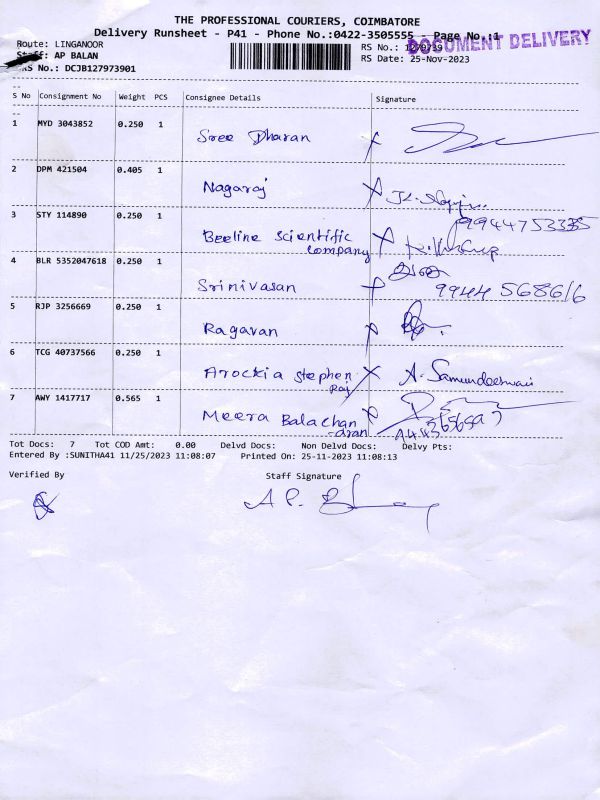 THE PROFESSIONAL COURIERS, COIMBATORE
Delivery Runsheet - P41 - Phone No.:0422-3505555 - Page No.:1
DOCUMENT DELIVERY
Route: LINGANOOR
RS No.:
Staff: AP BALAN
RS Date: 25-Nov-2023
RS No.: DCJB127973901
S No Consignment No Weight PCS Consignee Details Signature
1 MYD 3043852 0.250 1 Sree Dharan
2 DPM 421504 0.405 1 Nagaraj
3 STY 114890 0.250 1 Beeline Scientific Company 9944753335
4 BLR 5352047618 0.250 1 Srinivasan 9944 568616
5 RJP 3256669 0.250 1 Ragavan
6 TCG 40737566 0.250 1 Arockia Stephen Raj A. Samundeshwari
7 AWY 1417717 0.565 1 Meera Balachandran
Tot Docs: 7 Tot COD Amt: 0.00 Delvd Docs: Non Delvd Docs: Delvy Pts:
Entered By :SUNITHA41 11/25/2023 11:08:07 Printed On: 25-11-2023 11:08:13
Verified By Staff Signature